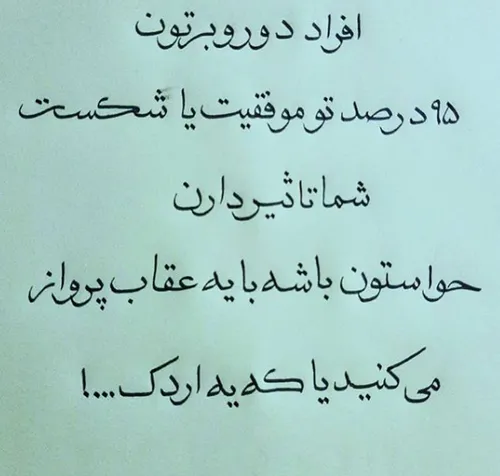 افراد دوروبرتون
۹۵درصد تو موفقیت یا شکست
شما تاثیر دارن
حواستون باشه با یه عقاب پرواز
می‌کنید یا که یه اردک....!